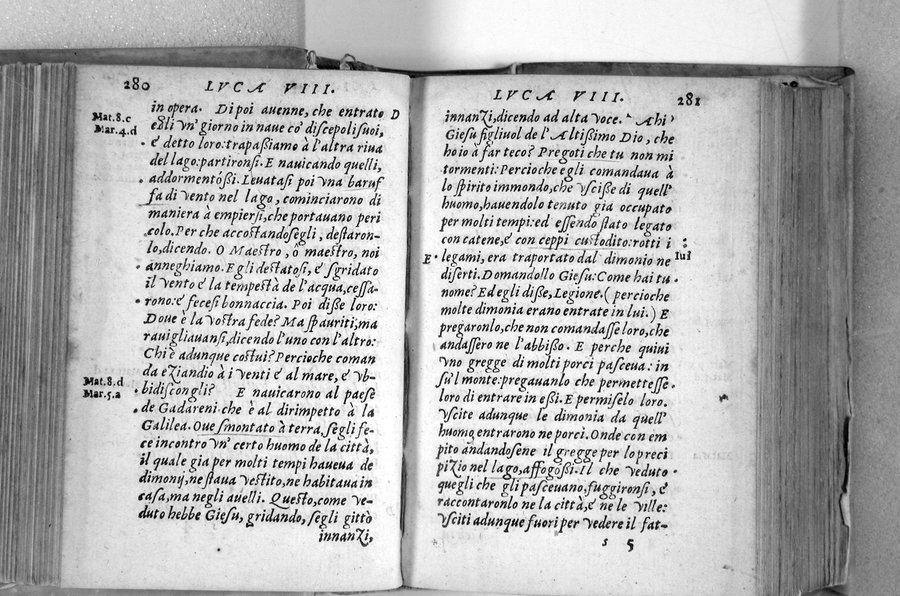 280
LVCÆ VIII.
in opera. Di poi auenne, che entrato D
Mat.8.c
egli vn' giorno in naue co' discepoli suoi,
Mar.4.d
é detto loro: trapaßiamo à l'altra riua
del lago: partironsi. E nauicando quelli,
addormentóßi. Leuatasi poi vna baruf
fa di vento nel lago, cominciarono di
maniera à empiersi, che portauano peri
colo. Per che accostandosegli, destaron-
lo, dicendo. O Maestro, ò maestro, noi
anneghiamo. Egli destatosi, é sgridato
il vento é la tempestà de l'acqua, cessa-
rono: é fecesi bonnaccia. Poi diße loro:
Doue è la vostra fede? Ma spauriti, ma
rauigliauansi, dicendo l'uno con l'altro:
Chi è adunque costui? Percioche coman
da eziandio à i venti é al mare, é vb-
Mat.8.d
bidiscongli? E nauicarono al paese
Mar.5.a
de Gadareni che è al dirimpetto à la
Galilea. Oue smontato à terra, segli fe-
ce incontro vn' certo huomo de la città,
il quale gia per molti tempi haueua de
dimonij, ne staua vestito, ne habitaua in
casa, ma negli auelli. Questo, come ve-
duto hebbe Giesu, gridando, segli gittò
innanZi,
LVCÆ VIII.
281
innanZi, dicendo ad alta voce. Ahi
Giesu figliuol de l'Altißimo Dio, che
ho io à far teco? Pregoti che tu non mi
tormenti: Percioche egli comandaua à
lo spirito immondo, che vscisse di quell'
huomo, hauendolo tenuto gia occupato
per molti tempi: ed essendo stato legato
con catene, é con ceppi custodito: rotti i
E legami, era traportato dal dimonio ne
Iui
diserti. Domandollo Giesu: Come hai tu
nome? Ed egli diße, Legione. (percioche
molte dimonia erano entrate in lui.) E
pregaronlo, che non comandasse loro, che
andassero ne l'abbißo. E perche quiui
vno gregge di molti porci pasceua: in
su'l monte: pregauanlo che permettesse
loro di entrare in eßi. E permiselo loro.
Vscite adunque le dimonia da quell'
huomo entrarono ne porci. Onde con em
pito andandosene il gregge per lo preci
piZio nel lago, affogoßi. Il che veduto
quegli che gli pasceuano, fuggironsi, é
raccontaronlo ne la città, é ne le ville:
vsciti adunque fuori per vedere il fat-
s 5